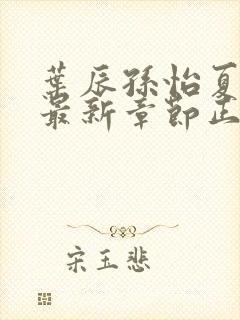 葉辰孫怡夏
最新章節正
宋玉悲